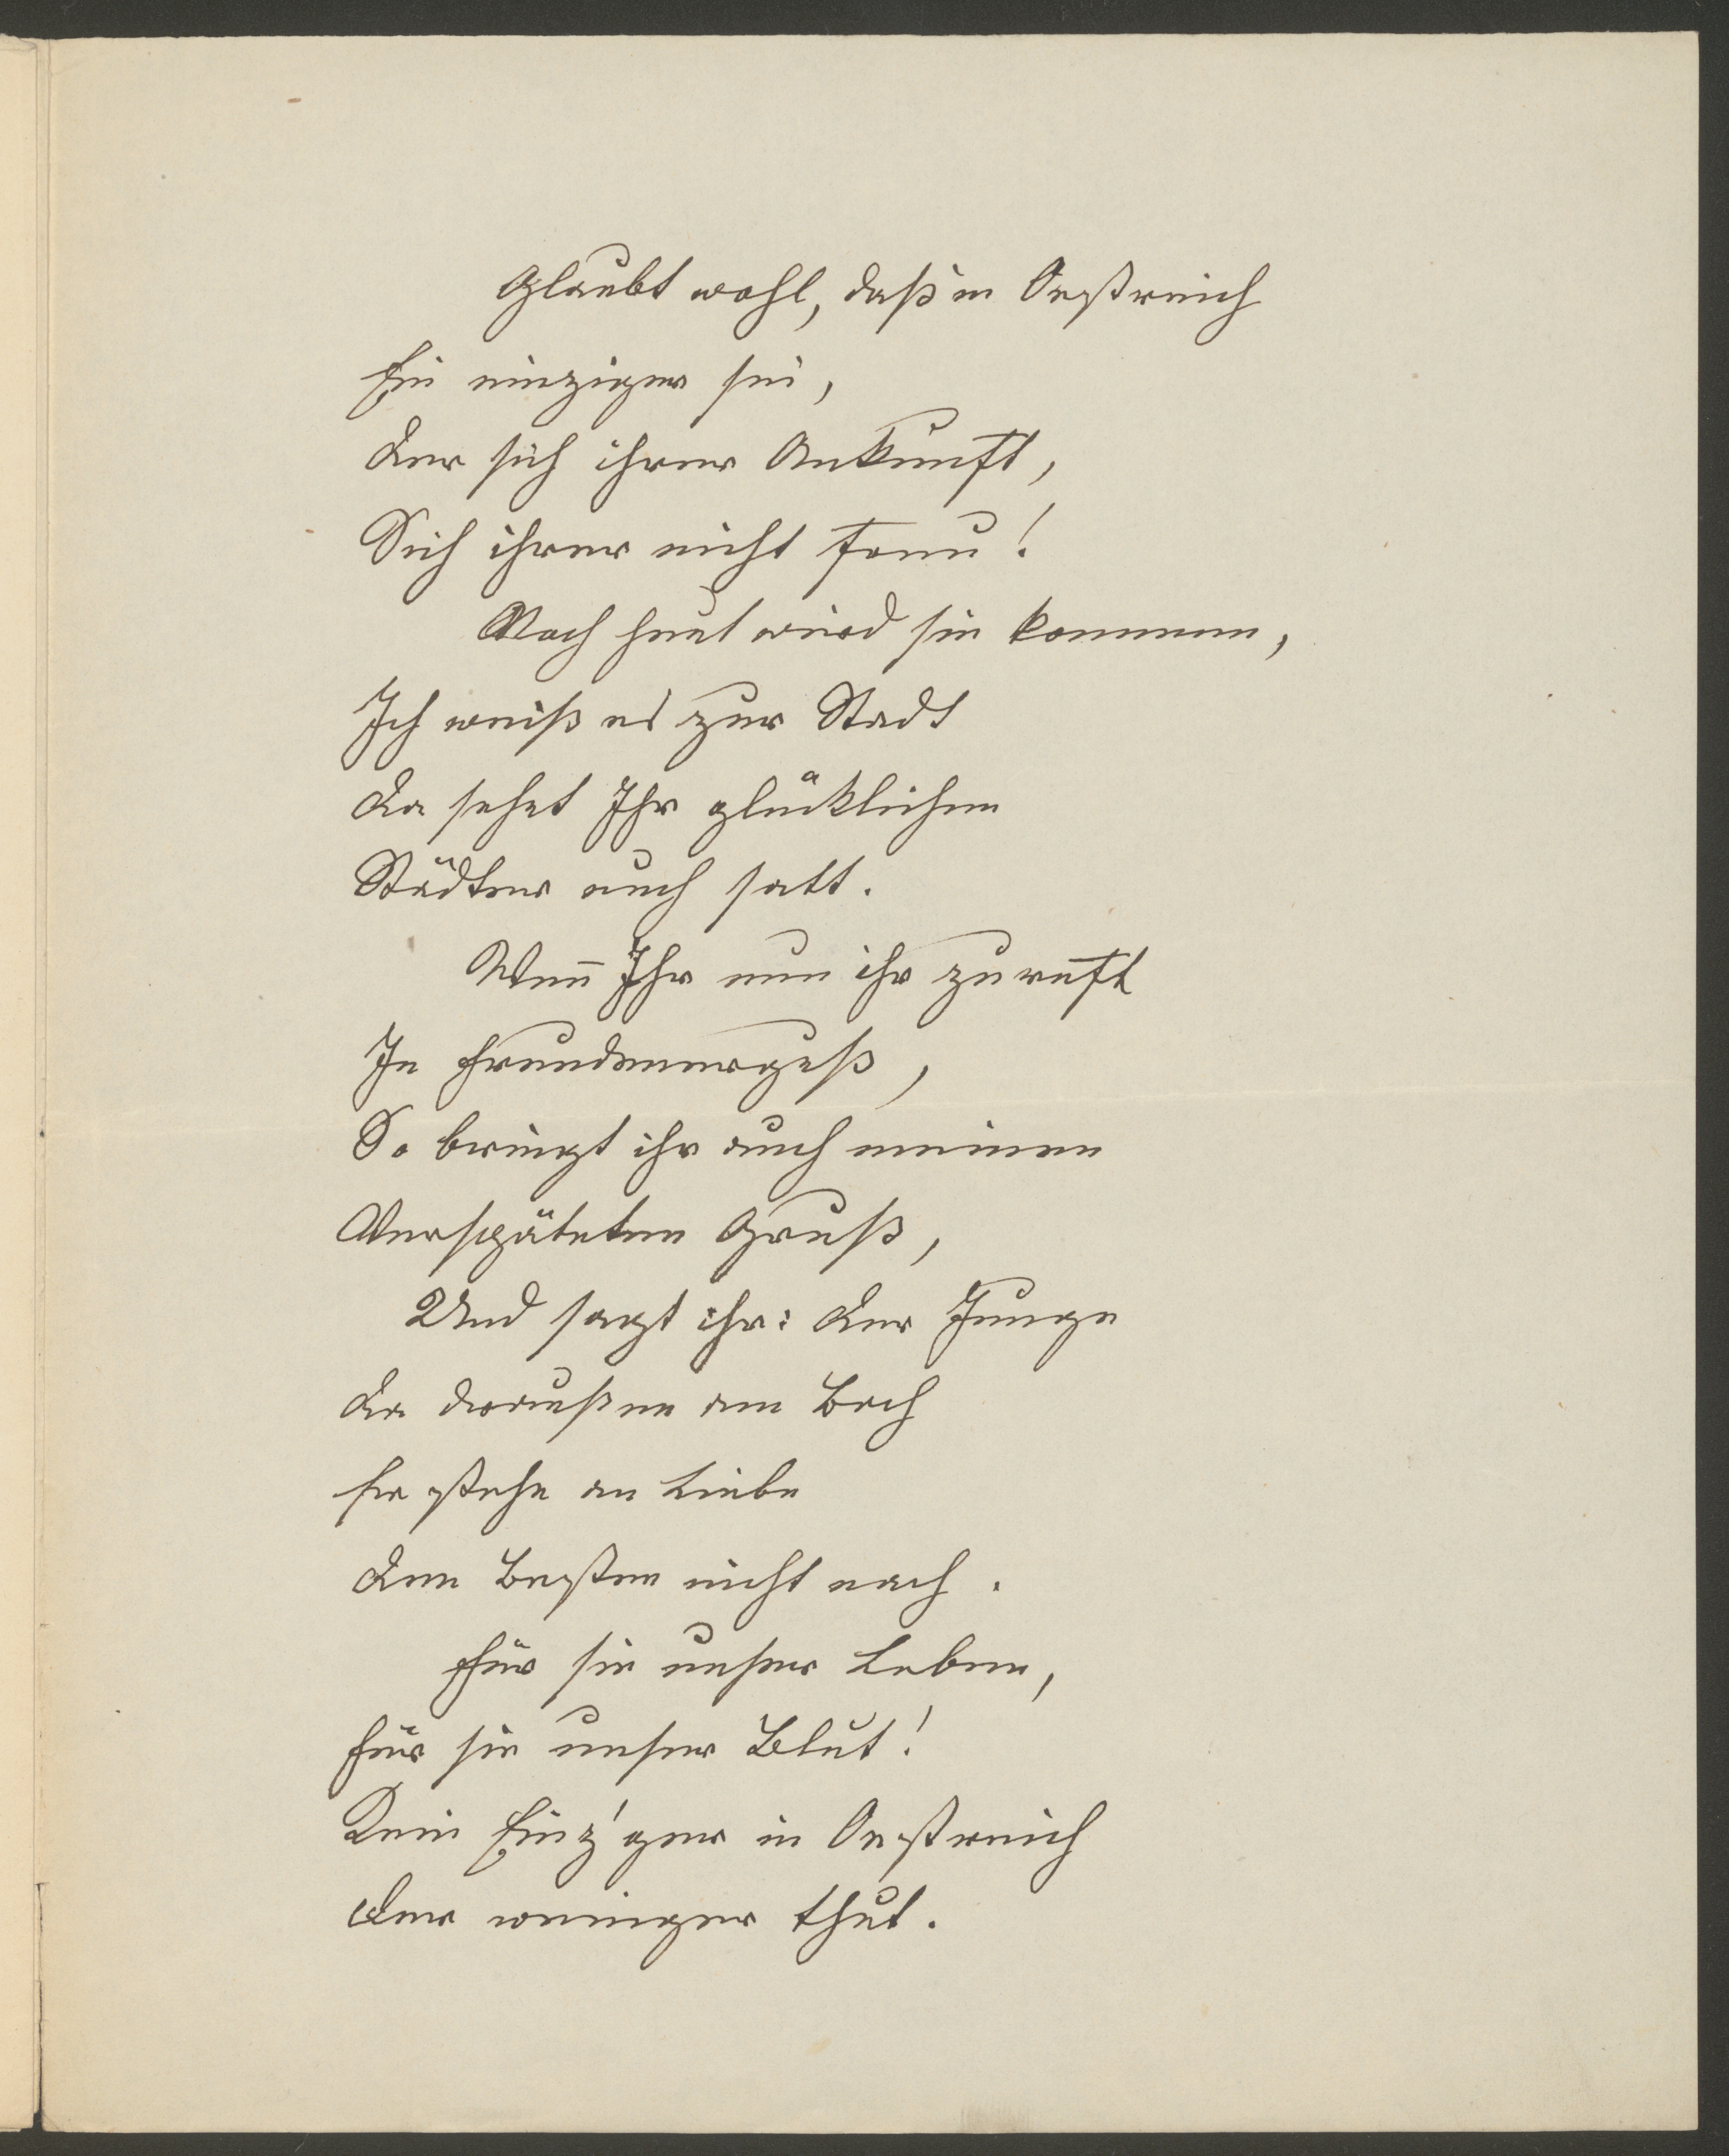 Glaubt wohl, daß in Oestreich
Ein einziger sei,
Der sich ihrer Ankunft,
Sich ihrer nicht freu!
Noch heut wird sie kommen,
Ich weiß es zur Stadt
Da sehet Ihr glücklichen
Städter euch satt.
Wen̄ Ihr nun ihr zuruft
In Freudenerguß,
So bringt ihr auch meinen
Verspäteten Gruß,
Und sagt ihr: Der Junge
Da draußen am Bach
Er stehe an Liebe
Dem Besten nicht nach.
Für sie unser Leben,
Für sie unser Blut!
Kein Einz'ger in Oestreich
Der weniger thut.